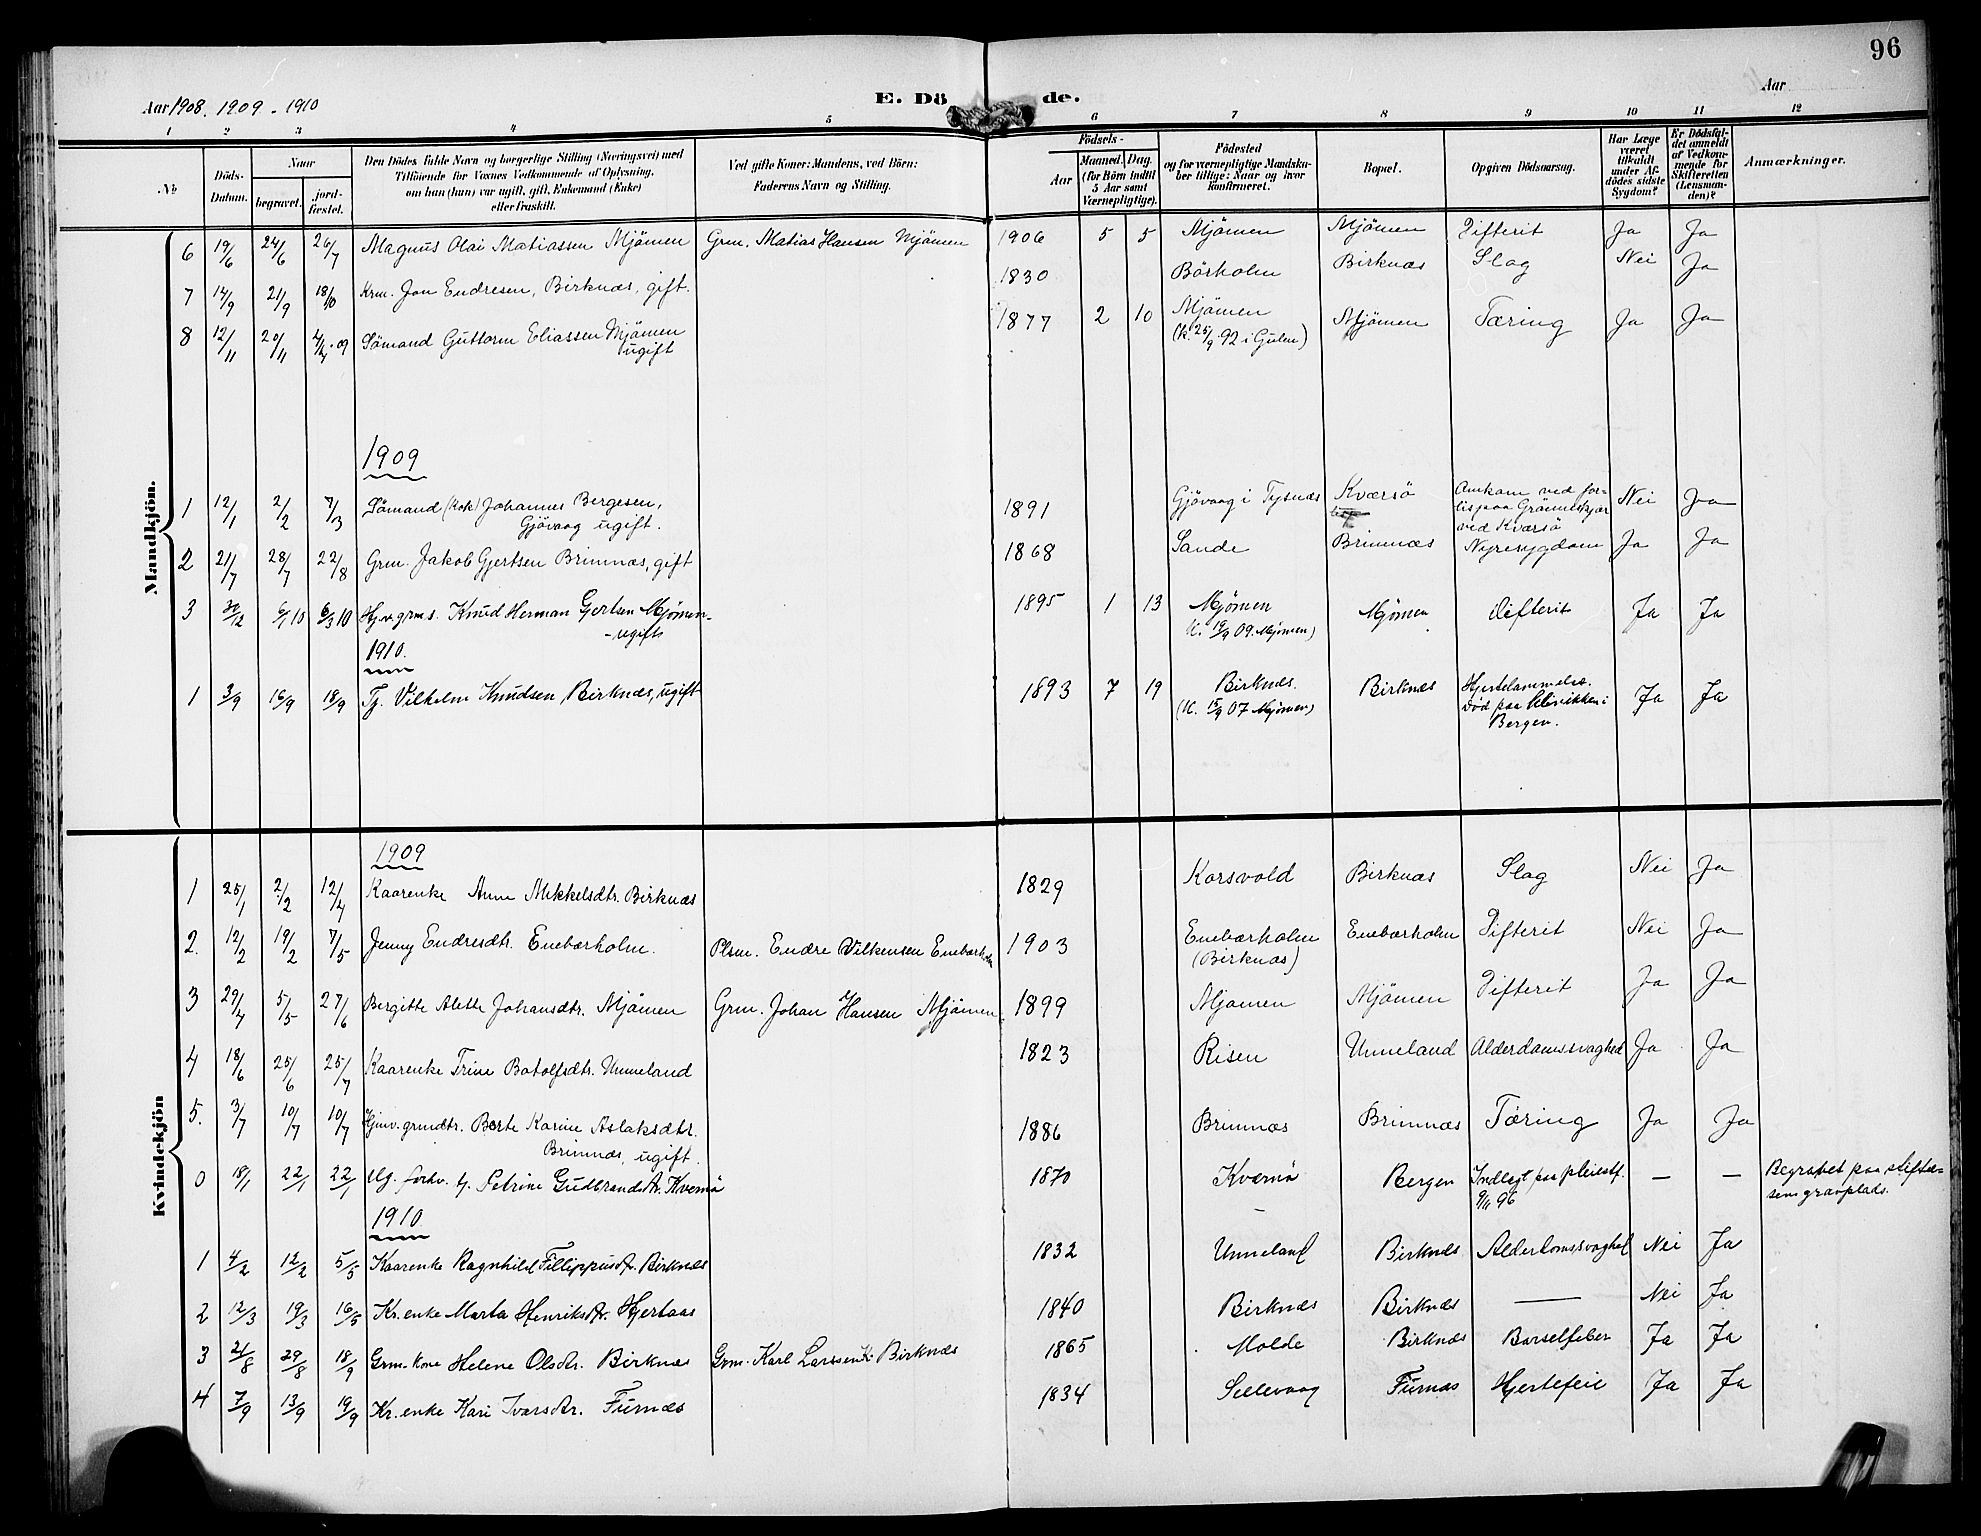 96
Aar 1908. 1909 - 1910
E. Dö de.
Aar
1 2 3 4 5 6 7 8 9 10 11 12
No
Döds-Datum.
Naar
begravet.
jord-fæstet.
Den Dödes fulde Navn og borgerlige Stilling (Næringsvei) med
Tilföiende for Voxnes Vedkommende af Oplysning,
om han (hun) var ugift, gift, Enkemand (Enke)
eller fraskilt.
Ved gifte Koner: Mandens, ved Börn:
Faderens Navn og Stilling.
Födsels-
Aar
Maaned. Dag.
(for Börn indtil
5 Aar samt
Værnepligtige).
Födested
og for værnepligtige Mandska-
ber tillige: Naar og hvor
konfirmeret.
Bopæl.
Opgiven Dödsaarsag.
Har Læge
været
tilkaldt
under Af-
dödes sidste
Sygdom?
Er Dödsfal-
det anmeldt
af Vedkom-
mende for
Skifteretten
(Lensman-
den)?
Anmærkninger.
Mandkjön.
6 19/6 24/6 26/7 Magnus Olai Matiassen Mjömen Grm. Matias Hansen Mjömen 1906 5 5 Mjömen Mjömen Difterit Ja Ja
7 14/9 21/9 18/10 Krm. Jon Endresen, Birknæs, gift. 1830 Börholm Birknæs Slag Nei Ja
8 12/11 20/11 4/4.09 Sömand Guttorm Eliassen Mjömen
ugift 1877 2 10 Mjömen
(k. 25/9 92 i Gulen) Mjömen Tæring Ja Ja
1909
1 12/1 2/2 7/3 Sömand (kok) Johannes Bergesen,
Gjövaag ugift. 1891 Gjövaag i Tysnæs Kværsö Omkom ved for-
lis paa Grönneskjær
ved Kværsö Nei Ja
2 21/7 28/7 22/8 Grm. Jakob Gjertsen Brimnæs, gift 1868 Sande Brimnæs Nyresygdom Ja Ja
3 30/12 6/1 10 6/3 10 Hjv. grm s. Knud Herman Gertsen Mjömen-
-ugift 1895 1 13 Mjömen
(k. 19/9 09. Mjömen) Mjömen Difterit Ja Ja
1910.
1 3/9 16/9 18/9 Tj. Vilhelm Knudsen Birknæs, ugift 1893 7 19 Birknæs.
(k. 15/9 07 Mjömen) Birknæs Hjertelammelse.
Död paa Klinikken i
Bergen. Ja Ja
Kvindekjön
1909
1 25/1 2/2 12/4 Kaarenke Anne Mikkelsdtr. Birknæs 1829 Korsvold Birknæs Slag Nei Ja
2. 12/2 19/2 7/5 Jenny Endresdtr. Enebærholm. Plsm. Endre Vilkensen Enebærholm 1903 Enebærholm
(Birknæs) Enebærholm Difterit Nei Ja
3 29/4 5/5 27/6 Bergitte Alette Johansdtr. Mjömen Grm. Johan Hansen Mjömen 1899 Mjömen Mjömen Difterit Ja Ja
4 18/6 25/6 25/7 Kaarenke Trine Botolfsdtr. Unneland 1823 Risen Unneland Alderdomssvaghed Ja Ja
5. 3/7 10/7 10/7 Hjmv. grmdtr. Berte Karine Aslaksdtr.
Brimnæs, ugift. 1886 Brimnæs Brimnæs Tæring Ja Ja
0 18/1 22/1 22/1 Ug. forhv. tj. Petrine Gudbrandsdtr. Kvernö 1870 Kvernö Bergen Indlagt paa pleiestf.
9/11 96 — — Begravet paa stiftel-
sens gravplads.
1910
1 4/2 12/2 5/5 Kaarenke Ragnhild Fillippusdtr. Birknæs 1832 Unneland Birknæs Alderdomssvaghed Nei Ja
2 12/3 19/3 16/5 Kr. enke Marta Henriksdtr. Hjertaas 1840 Birknæs Birknæs — Nei Ja
3 21/8 29/8 18/9 Grm. kone Helene Olsdtr. Birknæs Grm. Karl Larssen Birknæs 1865 Molde Birknæs Barselfeber Ja Ja
4 7/9 13/9 19/9 Kr. enke Kari Ivarsdtr. Furnæs 1834 Sellevaag Furnæs Hjertefeil Ja Ja